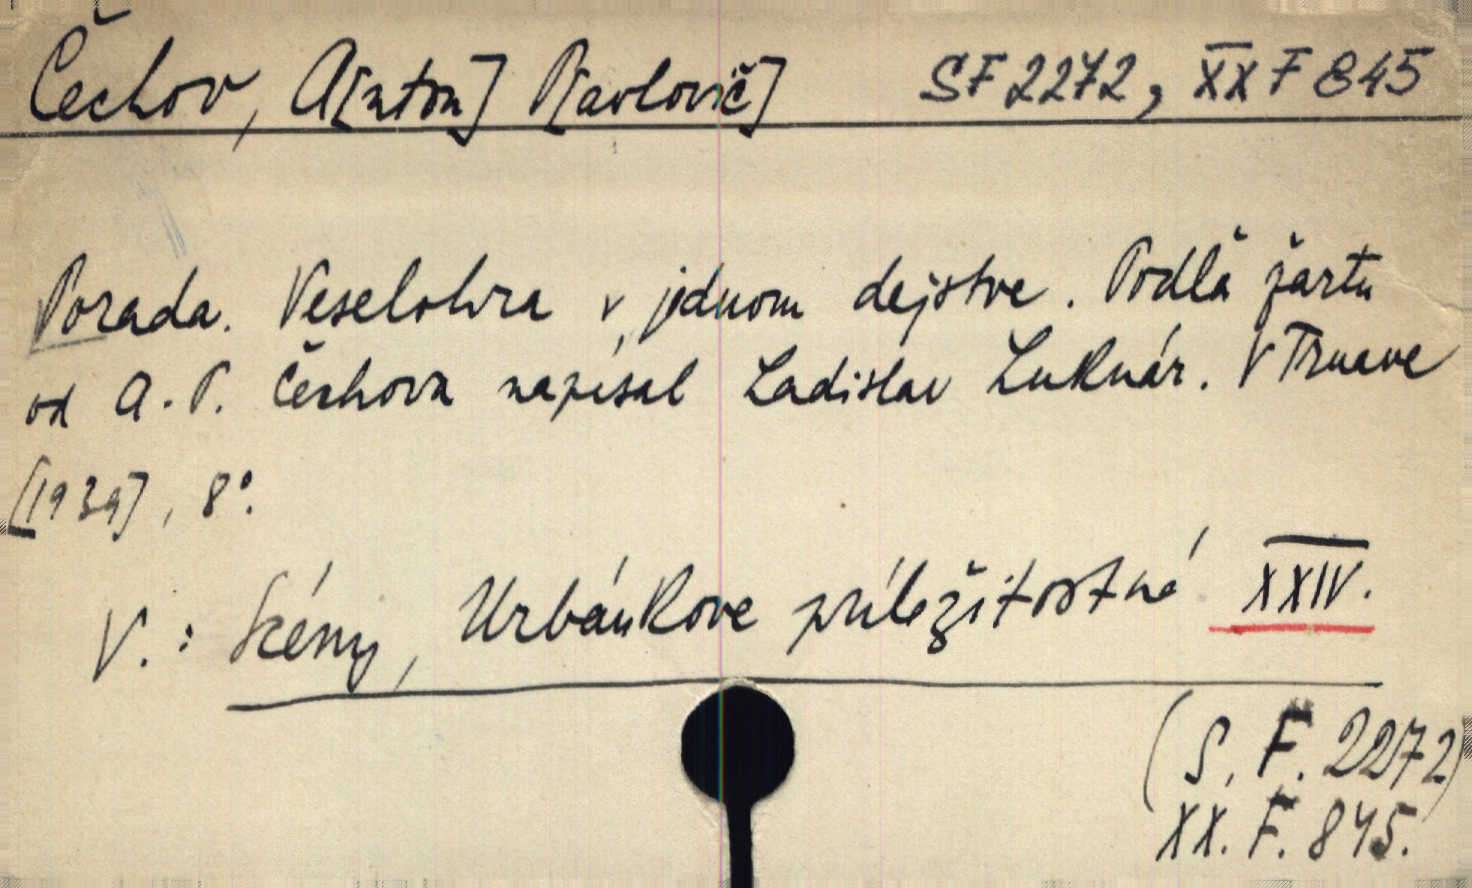 Čechov, A[nton] P[avlovič] SF 2272, XX F 845
Porada. Veselohra v jednom dejstve. Podľa žartu
od A. P. Čechova napísal Ladislav Luknár. V Trnave
[1939], 8°.
V.: Scény, Urbánkove príležitostné XXIV.
(S. F. 2272)
XX. F. 845.